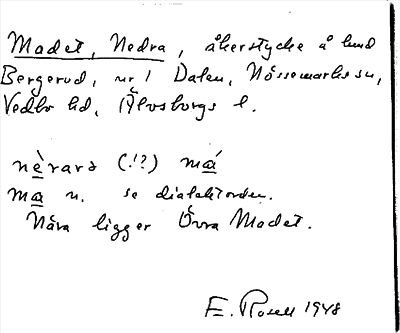 Madet, Nedra, åkerstycke å lund
Bergerud, nr 1 Dalen, Nössemarks sn,
Vedbo hd, Älvsborgs l.
nèrara (!?) má
ma n. se dialektorden.
Nära ligger Övra Madet.
E. Rosell 1948